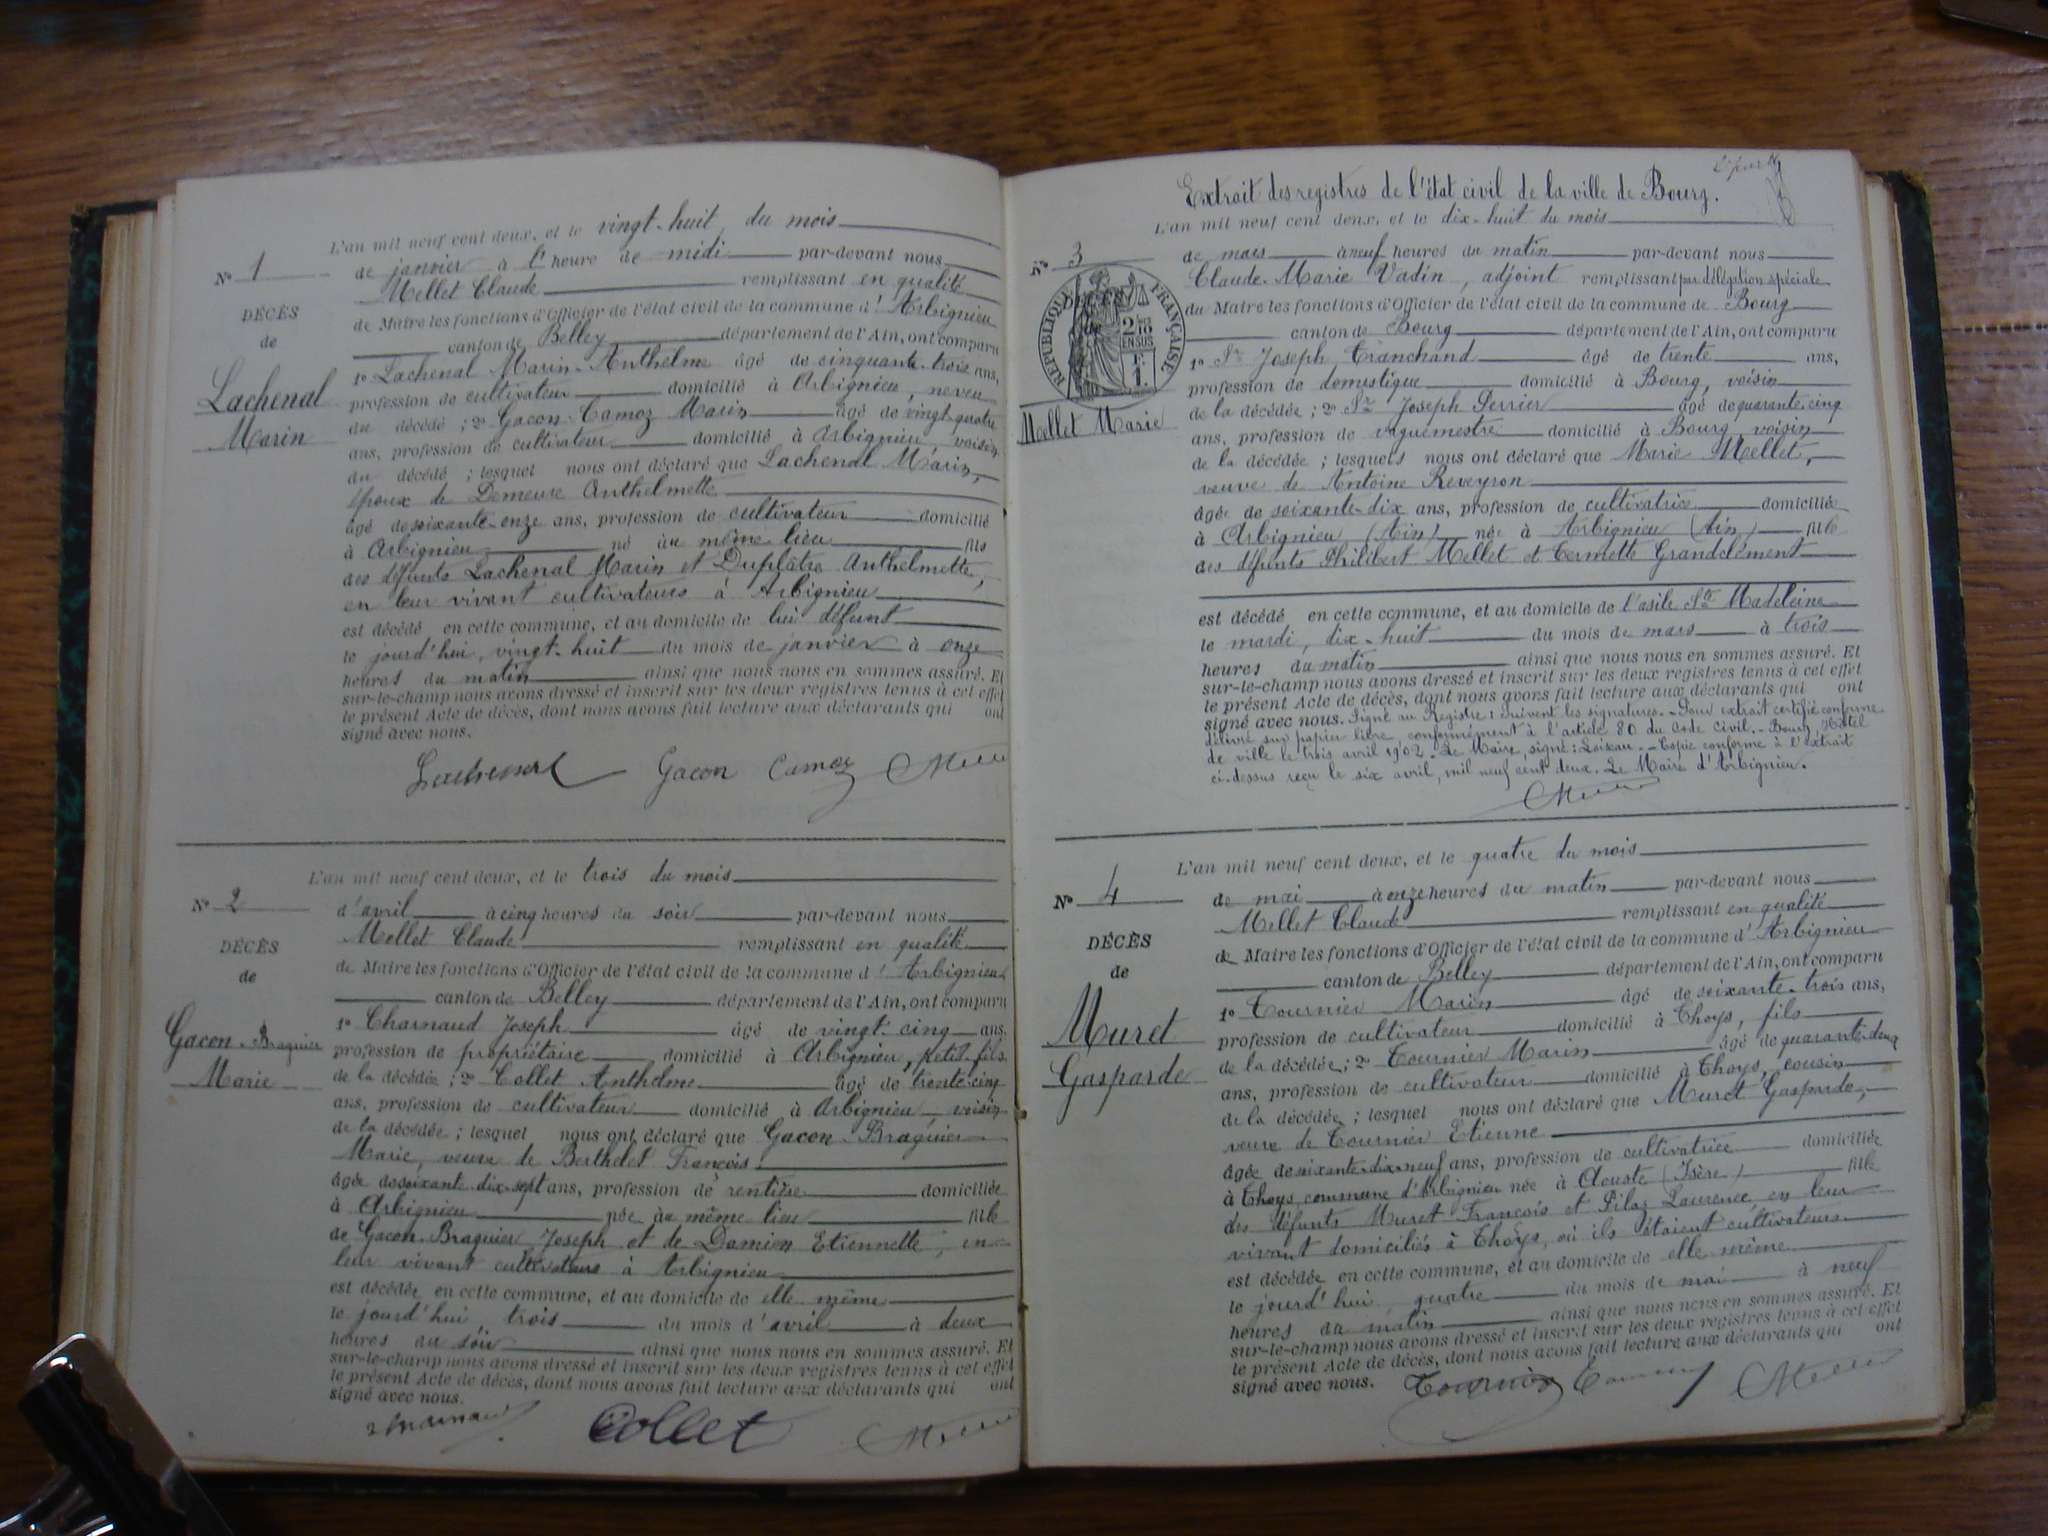 L'an mil neuf cent deux, et le vingt-huit du mois
No 1
de janvier à l'heure de midi par-devant nous
Mellet Claude remplissant en qualité
DÉCÈS
de Maire les fonctions d'Officier de l'état civil de la commune d'Arbignieu
de
canton de Belley département de l'Ain, ont comparu
Lachenal
Marin
1o Lachenal Marin-Anthelme âgé de cinquante-trois ans,
profession de cultivateur domicilié à Arbignieu, neveu
du décédé ; 2o Gacon-Camoz Marin âgé de vingt-quatre
ans, profession de cultivateur domicilié à Arbignieu, voisin
du décédé ; lesquel nous ont déclaré que Lachenal Marin,
époux de Demeure Anthelmette
âgé de soixante-onze ans, profession de cultivateur domicilié
à Arbignieu né au même lieu fils
des défunts Lachenal Marin et Duplâtre Anthelmette,
en leur vivant cultivateurs à Arbignieu
est décédé en cette commune, et au domicile de lui défunt
le jourd'hui, vingt-huit du mois de janvier à onze
heures du matin ainsi que nous nous en sommes assuré. Et
sur-le-champ nous avons dressé et inscrit sur les deux registres tenus à cet effet
le présent Acte de décès, dont nous avons fait lecture aux déclarants qui ont
signé avec nous.
Lachenal Gacon Camoz
L'an mil neuf cent deux, et le trois du mois
No 2
d'avril à cinq heures du soir par-devant nous
Mellet Claude remplissant en qualité
DÉCÈS
de Maire les fonctions d'Officier de l'état civil de la commune d'Arbignieu
de
canton de Belley département de l'Ain, ont comparu
Gacon-Braguier
Marie
1o Charnaud Joseph âgé de vingt-cinq ans,
profession de propriétaire domicilié à Arbignieu, petit-fils
de la décédée ; 2o Collet Anthelme âgé de trente-cinq
ans, profession de cultivateur domicilié à Arbignieu, voisin
de la décédée ; lesquel nous ont déclaré que Gacon-Braguier
Marie, veuve de Berthelet François
âgée de soixante-dix-sept ans, profession de rentière domiciliée
à Arbignieu née au même lieu fille
de Gacon-Braguier Joseph et de Damien Etiennette, en
leur vivant cultivateurs à Arbignieu
est décédée en cette commune, et au domicile de elle même
le jourd'hui, trois du mois d'avril à deux
heures du soir ainsi que nous nous en sommes assuré. Et
sur-le-champ nous avons dressé et inscrit sur les deux registres tenus à cet effet
le présent Acte de décès, dont nous avons fait lecture aux déclarants qui ont
signé avec nous.
Collet
Extrait des registres de l'état civil de la ville de Bourg.
L'an mil neuf cent deux, et le dix-huit du mois
No 3
de mars à neuf heures du matin par-devant nous
Claude-Marie Vadin, adjoint remplissant par délégation spéciale
du Maire les fonctions d'Officier de l'état civil de la commune de Bourg
canton de Bourg département de l'Ain, ont comparu
RÉPUBLIQUE FRANÇAISE
2/10 EN SUS
1F.
Mellet Marie
1o Sr Joseph Tranchand âgé de trente ans,
profession de domestique domicilié à Bourg, voisin
de la décédée ; 2o Sr Joseph Perrier âgé de quarante-cinq
ans, profession de vaguemestre domicilié à Bourg, voisin
de la décédée ; lesquels nous ont déclaré que Marie Mellet,
veuve de Antoine Reveyron
âgée de soixante-dix ans, profession de cultivatrice domiciliée
à Arbignieu (Ain) née à Arbignieu (Ain) fille
des défunts Philibert Mellet et Cermette Grandclément
est décédé en cette commune, et au domicile de l'asile Ste Madeleine
le mardi, dix-huit du mois de mars à trois
heures du matin ainsi que nous nous en sommes assuré. Et
sur-le-champ nous avons dressé et inscrit sur les deux registres tenus à cet effet
le présent Acte de décès, dont nous avons fait lecture aux déclarants qui ont
signé avec nous. Signé au Registre : suivent les signatures. - Pour extrait certifié conforme
délivré sur papier libre, conformément à l'article 80 du code civil. - Bourg, Hôtel
de ville le trois avril 1902. - Le Maire, signé : Loiseau. - Copie conforme à l'extrait
ci-dessus reçu le six avril, mil neuf cent deux. Le Maire d'Arbignieu.
L'an mil neuf cent deux, et le quatre du mois
No 4
de mai à onze heures du matin par-devant nous
Mellet Claude remplissant en qualité
DÉCÈS
de Maire les fonctions d'Officier de l'état civil de la commune d'Arbignieu
de
canton de Belley département de l'Ain, ont comparu
Muret
Gasparde
1o Tournier Marin âgé de soixante-trois ans,
profession de cultivateur domicilié à Thoys, fils
de la décédée ; 2o Tournier Marin âgé de quarante-deux
ans, profession de cultivateur domicilié à Thoys, cousin
de la décédée ; lesquel nous ont déclaré que Muret Gasparde,
veuve de Tournier Etienne
âgée de soixante-dix-neuf ans, profession de cultivatrice domiciliée
à Thoys, commune d'Arbignieu née à Aouste (Isère) fille
des défunts Muret François et Pilaz Laurence, en leur
vivant domiciliés à Thoys, où ils étaient cultivateurs
est décédée en cette commune, et au domicile de elle même
le jourd'hui, quatre du mois de mai à neuf
heures du matin ainsi que nous nous en sommes assuré. Et
sur-le-champ nous avons dressé et inscrit sur les deux registres tenus à cet effet
le présent Acte de décès, dont nous avons fait lecture aux déclarants qui ont
signé avec nous. Tournier